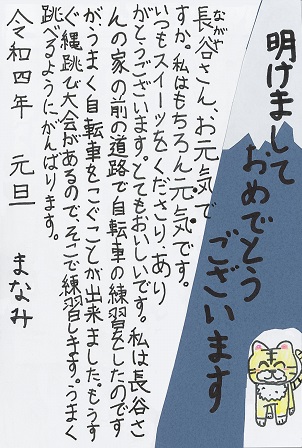 明けまして
おめでとう
ございます
ながや
長谷さん、お元気で
すか。私はもちろん元気です。
いつもスイーツをくださり、あり
がとうございます。とてもおいしいです。私は長谷さ
んの家の前の道路で自転車の練習をしたのです
がうまく自転車をこぐことが出来ました。もうす
ぐ縄跳び大会があるので、そこで練習します。うまく
跳べるようにがんばります。
令和四年 元旦 まなみ